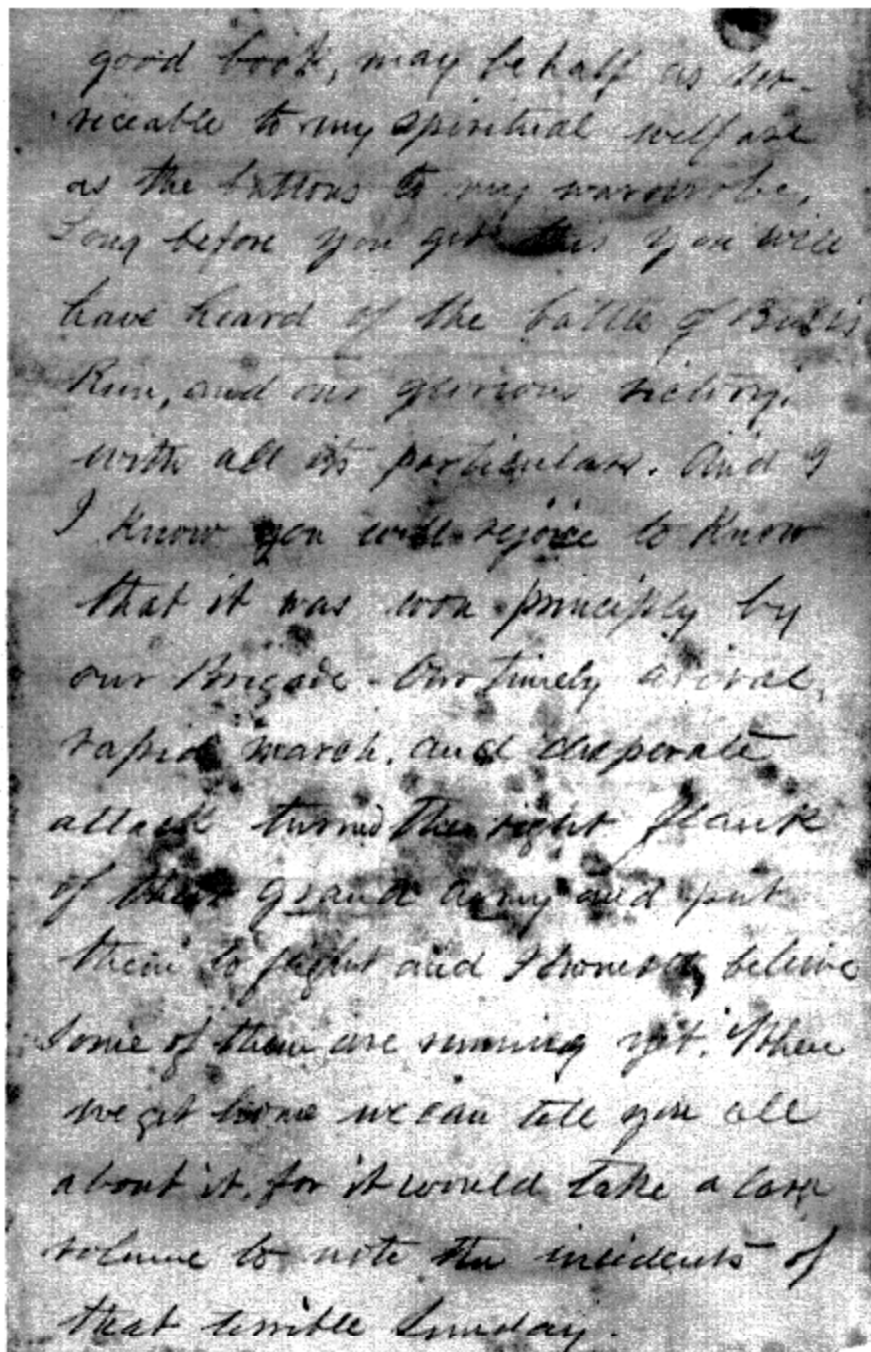 good book, may be half as ser-
viceable to my spiritual welfare
as the buttons to my wardrobe.
Long before you get this you will
have heard of the battle of Bull's
Run, and our glorious victory,
with all its particulars. And I
I know you will rejoice to know
that it was won principly by
our Brigade. Our timely arival,
rapid march, and desperate
attack turned the right flank
of their grand army and put
them to flight and I honestly believe
some of them are running yet. When
we get home we can tell you all
about it, for it would take a
volume to note the incidents of
that terrible Sunday.